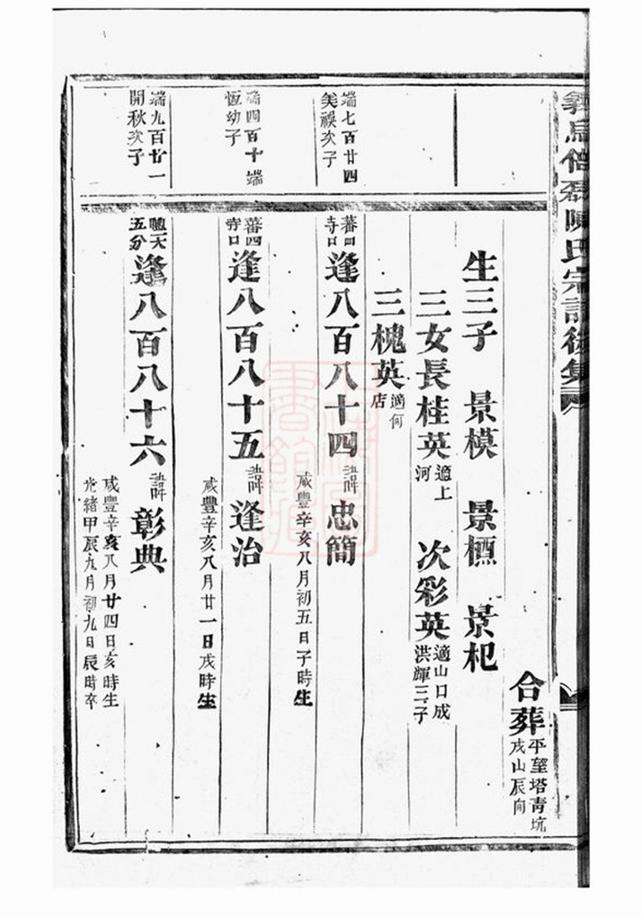 陳氏宗譜後集
合葬平望塔青坑
戌山辰向
生三子 景模 景標 景杞
三女長桂英適上
河 次彩英適山口成
洪輝三子
三槐英適何
店
端七百廿四
美禄次子
逢八百八十四諱忠簡
寺口
咸豐辛亥八月初五日子時生
端四百十端
恆幼子
蕃四
寺口逢八百八十五諱逢治
咸豐辛亥八月廿一日戌時生
端九百廿一
開秋次子
五分逢八百八十六諱彰典
咸豐辛亥八月廿四日亥時生
光緒甲辰九月初九日辰時卒